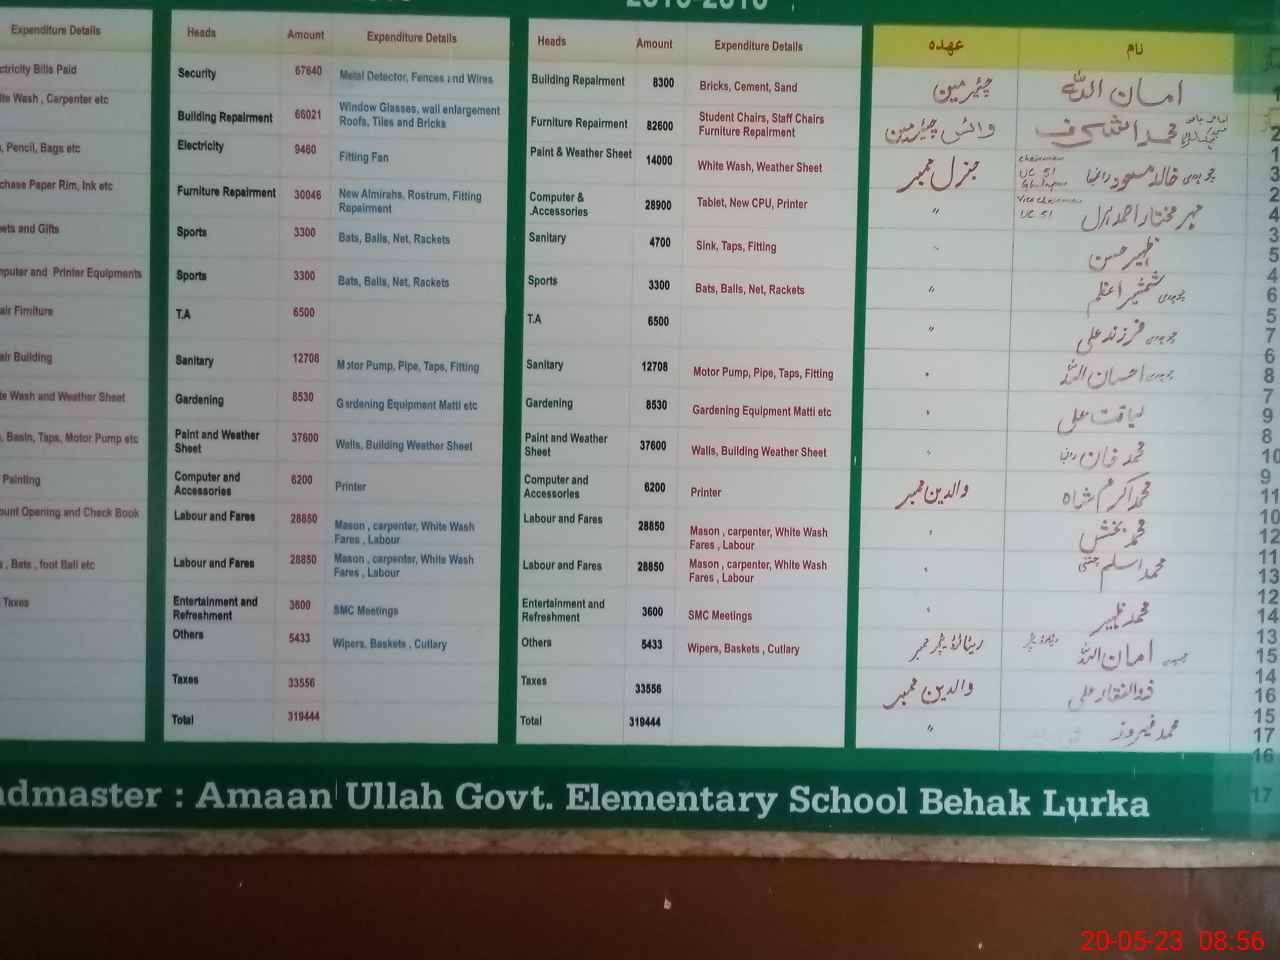 Expenditure Details
ctricity Bills Paid
ite Wash , Carpenter etc
, Pencil, Bags etc
chase Paper Rim, Ink etc
ets and Gifts
nputer and Printer Equipments
air Firniture
air Building
te Wash and Weather Sheet
, Basin, Taps, Motor Pump etc
Painting
ount Opening and Check Book
, Bats , foot Ball etc
Taxes
Heads Amount Expenditure Details
Security 67640 Metal Detector, Fences and Wires
Building Repairment 66021 Window Glasses, wall enlargement
Roofs, Tiles and Bricks
Electricity 9460 Fitting Fan
Furniture Repairment 30046 New Almirahs, Rostrum, Fitting
Repairment
Sports 3300 Bats, Balls, Net, Rackets
Sports 3300 Bats, Balls, Net, Rackets
T.A 6500
Sanitary 12708 Motor Pump, Pipe, Taps, Fitting
Gardening 8530 Gardening Equipment Matti etc
Paint and Weather
Sheet 37600 Walls, Building Weather Sheet
Computer and
Accessories 6200 Printer
Labour and Fares 28850 Mason , carpenter, White Wash
Fares , Labour
Labour and Fares 28850 Mason , carpenter, White Wash
Fares , Labour
Entertainment and
Refreshment 3600 SMC Meetings
Others 5433 Wipers, Baskets , Cutlary
Taxes 33556
Total 319444
Heads Amount Expenditure Details
Building Repairment 8300 Bricks, Cement, Sand
Furniture Repairment 82600 Student Chairs, Staff Chairs
Furniture Repairment
Paint & Weather Sheet 14000 White Wash, Weather Sheet
Computer &
.Accessories 28900 Tablet, New CPU, Printer
Sanitary 4700 Sink, Taps, Fitting
Sports 3300 Bats, Balls, Net, Rackets
T.A 6500
Sanitary 12708 Motor Pump, Pipe, Taps, Fitting
Gardening 8530 Gardening Equipment Matti etc
Paint and Weather
Sheet 37600 Walls, Building Weather Sheet
Computer and
Accessories 6200 Printer
Labour and Fares 28850 Mason , carpenter, White Wash
Fares , Labour
Labour and Fares 28850 Mason , carpenter, White Wash
Fares , Labour
Entertainment and
Refreshment 3600 SMC Meetings
Others 5433 Wipers, Baskets , Cutlary
Taxes 33556
Total 319444
نام عہدہ
1 امان اللہ چیئرمین
2 محمد اشرف وائس چیئرمین
3 چوہدری خالد مسعود رانجھا chairman UC 51 جنرل ممبر
4 مہر مختار احمد ہرل Vice chairman UC 51 "
5 ظہیر حسن "
6 چوہدری شمشیر اعظم "
7 چوہدری فرزند علی "
8 چوہدری احسان اللہ "
9 لیاقت علی "
10 محمد خان رانجھا "
11 محمد اکرم شاہ والدین ممبر
12 محمد بخش "
13 محمد اسلم "
14 محمد ظہیر "
15 امان اللہ ریٹائرڈ ٹیچر ممبر
16 ذوالفقار علی والدین ممبر
17 محمد فیروز "
admaster : Amaan Ullah Govt. Elementary School Behak Lurka
20-05-23 08:56